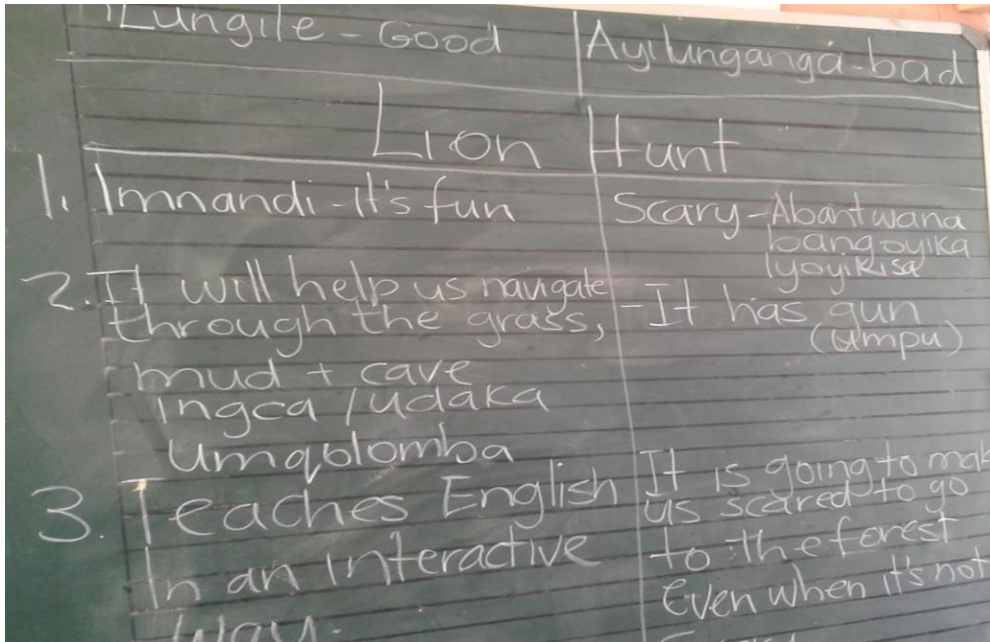 Lungile - Good
Ayilunganga - bad
Lion Hunt
1. Imnandi - It's fun
Scary - Abantwana
bangoyika
Iyoyikisa
2. It will help us navigate
through the grass,
mud + cave
Ingca / udaka
Umqolomba
- It has gun
(Umpu)
3. Teaches English
In an Interactive
way.
It is going to mak
us scared to go
to the forest
even when it's not